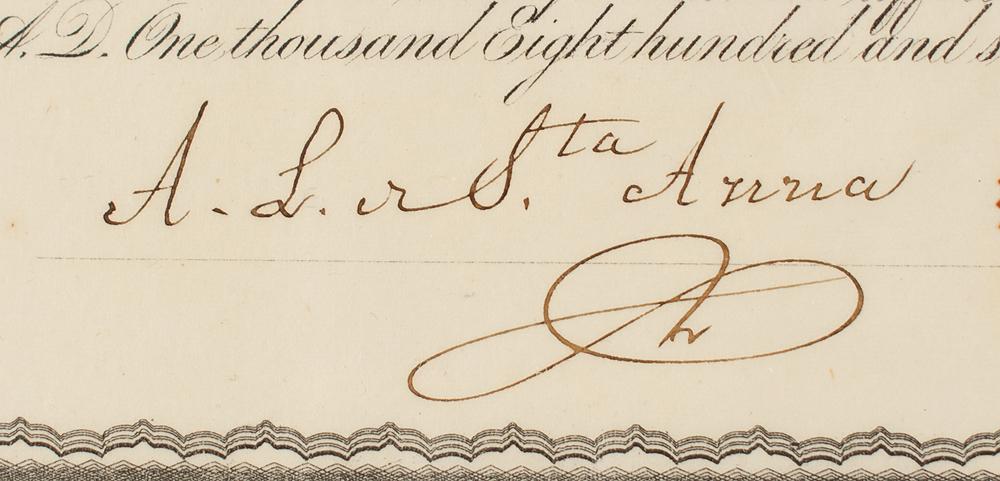 A. D. One thousand Eight hundred and s
A. L. r S.ta Anna